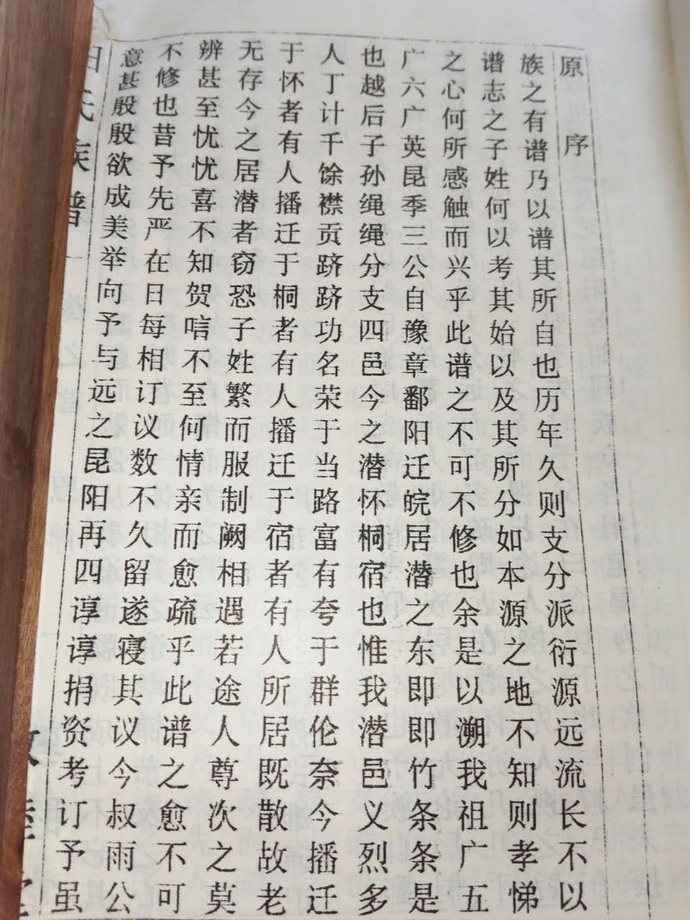 原序
族之有谱乃以谱其所自也历年久则支分派衍源远流长不以
谱志之子姓何以考其始以及其所分如本源之地不知则孝悌
之心何所感触而兴乎此谱之不可不修也余是以溯我祖广五
广六广英昆季三公自豫章鄱阳迁皖居潜之东即即竹条条是
也越后子孙绳绳分支四邑今之潜怀桐宿也惟我潜邑义烈多
人丁计千馀襟贡跻跻功名荣于当路富有夸于群伦奈今播迁
于怀者有人播迁于桐者有人播迁于宿者有人所居既散故老
无存今之居潜者窃恐子姓繁而服制阙相遇若途人尊次之莫
辨甚至忧忧喜不知贺唁不至何情亲而愈疏乎此谱之愈不可
不修也昔予先严在日每相订议数不久留遂寝其议今叔雨公
意甚殷殷欲成美举向予与远之昆阳再四谆谆捐资考订予虽
氏族谱